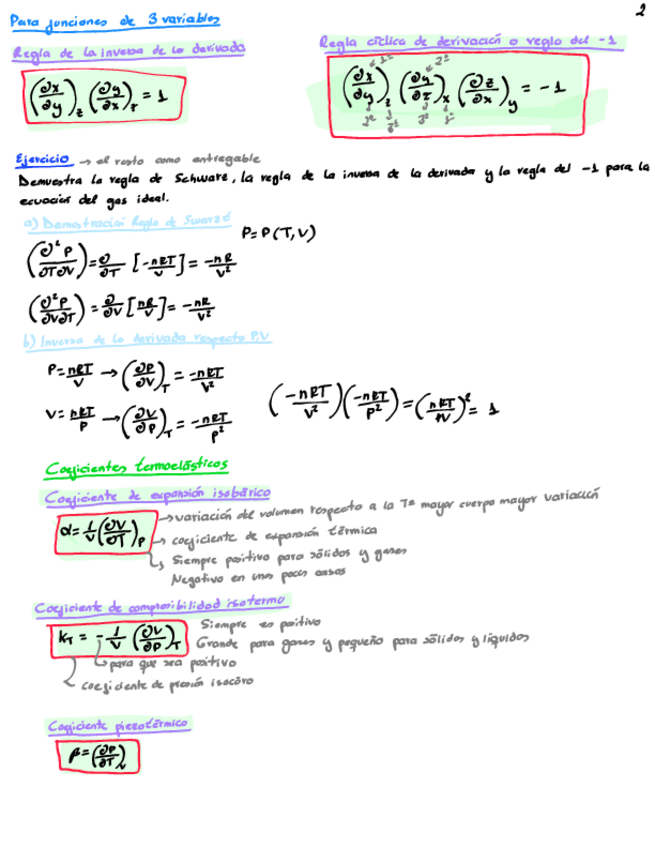 2
Para funciones de 3 variables
Regla de la inversa de la derivada
(∂x/∂y)_z (∂y/∂x)_z = 1
Regla cíclica de derivación o regla del -1
(∂x/∂y)_z (∂y/∂z)_x (∂z/∂x)_y = -1
Ejercicio → el resto como entregable
Demuestra la regla de Schwarz, la regla de la inversa de la derivada y la regla del -1 para la
ecuación del gas ideal.
a) Demostración Regla de Swarz
P=P(T,V)
(∂²P/∂T∂V) = ∂/∂T [-nRT/V] = -nR/V²
(∂²P/∂V∂T) = ∂/∂V [nR/V] = -nR/V²
b) Inversa de la derivada respecto P,V
P = nRT/V → (∂P/∂V)_T = -nRT/V²
V = nRT/P → (∂V/∂P)_T = -nRT/P²
(-nRT/V²)(-nRT/P²) = (nRT/PV)² = 1
Coeficientes termoelásticos
Coeficiente de expansión isobárico
α = 1/V (∂V/∂T)_P
→ variación del volumen respecto a la Tª mayor cuerpo mayor variación
→ coeficiente de expansión térmica
Siempre positivo para sólidos y gases
Negativo en unos pocos casos
Coeficiente de compresibilidad isotermo
K_T = -1/V (∂V/∂P)_T
Siempre es positivo
Grande para gases y pequeño para sólidos y líquidos
para que sea positivo
coeficiente de presión isocóro
Coeficiente piezotérmico
β = (∂P/∂T)_V